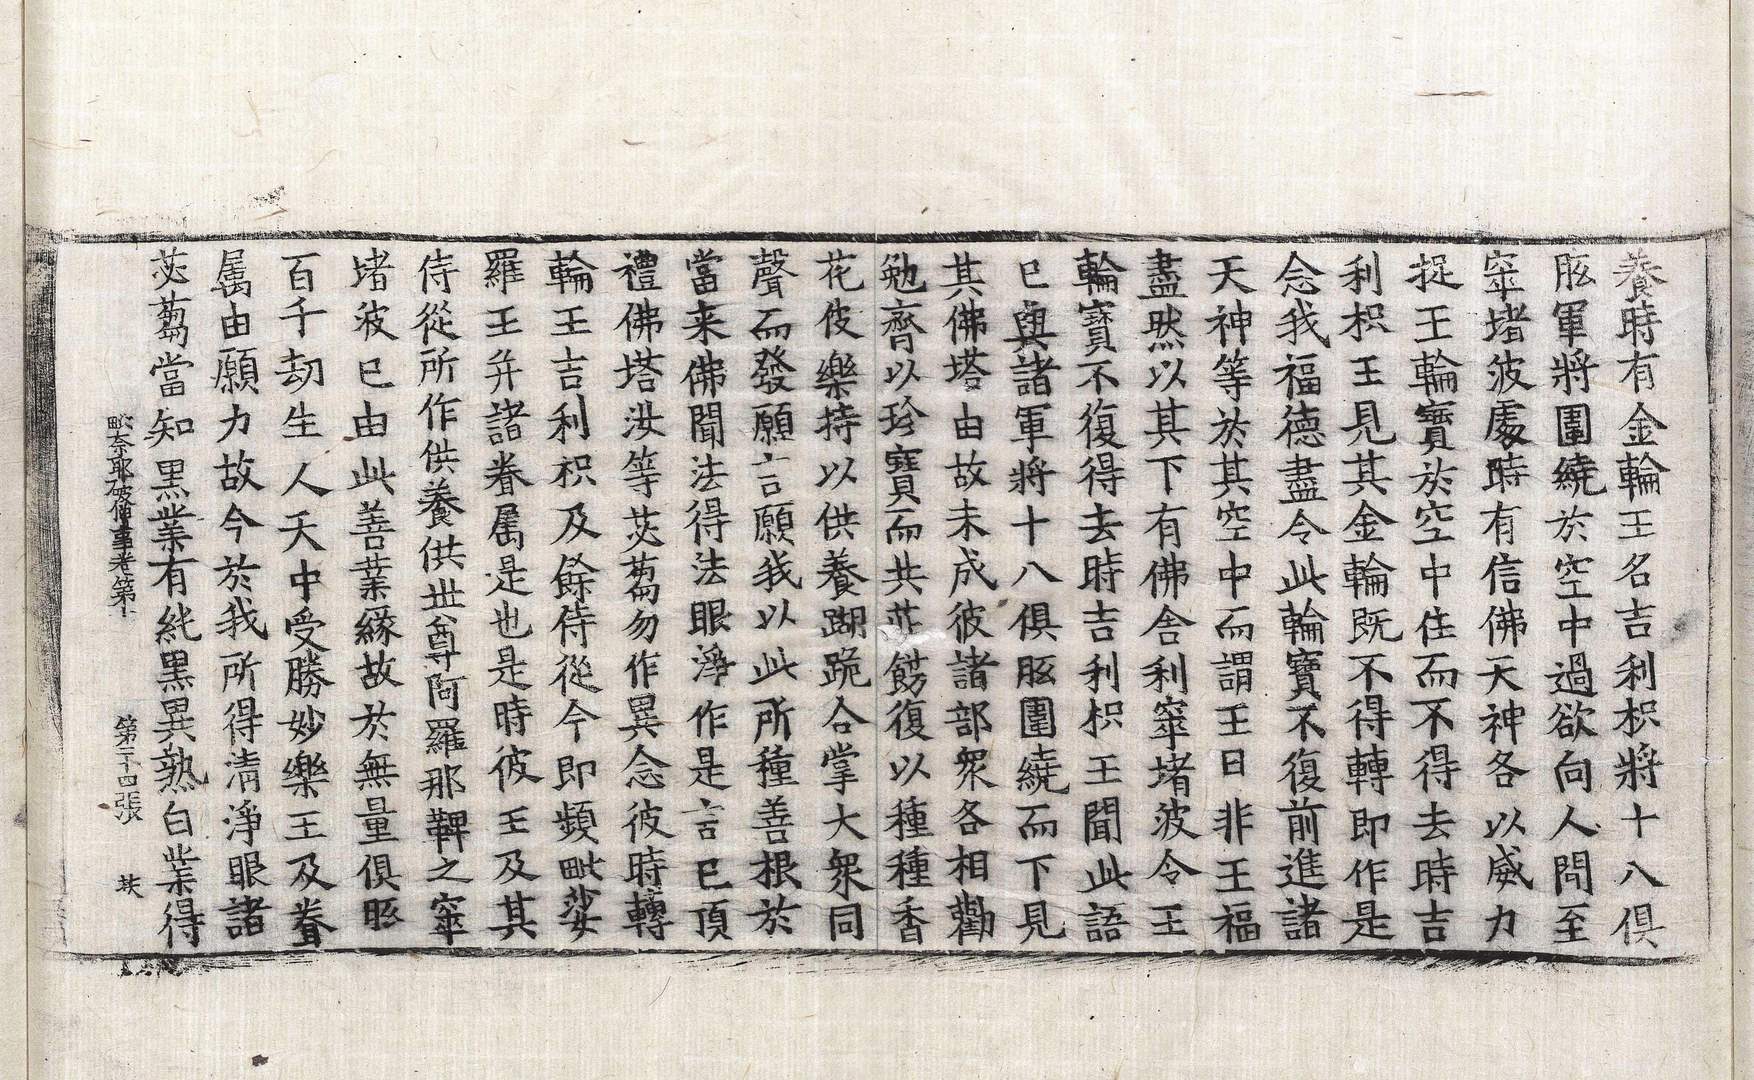 養時有金輪王名吉利枳將十八俱
胝軍將圍繞於空中過欲向人間至
窣堵波處時有信佛天神各以威力
捉王輪寶於空中住而不得去時吉
利枳王見其金輪旣不得轉即作是
念我福德盡令此輪寶不復前進諸
天神等於其空中而謂王曰非王福
盡然以其下有佛舍利窣堵波令王
輪寶不復得去時吉利枳王聞此語
已與諸軍將十八俱胝圍繞而下見
其佛塔由故未成彼諸部衆各相勸
勉齎以珍寶而共莊餝復以種種香
花伎樂持以供養蹰跪合掌大衆同
聲而發願言願我以此所種善根於
當来佛聞法得法眼淨作是言已頂
禮佛塔汝等苾芻勿作異念彼時轉
輪王吉利枳及餘侍從今即頻毗娑
羅王并諸眷屬是也是時彼王及其
侍從所作供養供世尊阿羅那鞞之窣
堵波已由此善業緣故於無量俱胝
百千劫生人天中受勝妙樂王及眷
属由願力故今於我所得清淨眼諸
苾芻當知黑業有純黑異熟白業得
毗奈耶破僧事卷第十 第二十四張 扶